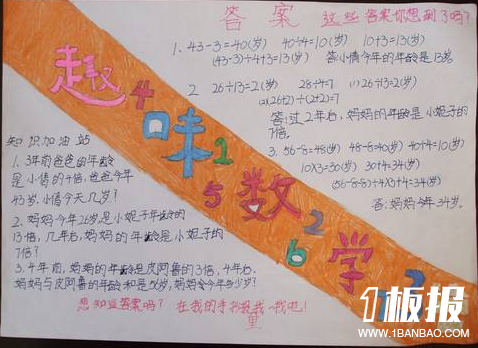 答案 这些答案你想到了吗?
1、43-3=40(岁) 40÷4=10(岁) 10+3=13(岁)
(43-3)÷4+3=13(岁) 答:小倩今年的年龄是13岁.
2 26÷13=2(岁) 28÷4=7 (1)26÷13=2(岁)
(2)(26+2)÷(2+2)=7
答:过2年后,妈妈的年龄是小妮子的
7倍.
3. 56-8=48(岁) 48-8=40(岁) 40÷4=10(岁)
10×3=30(岁) 30+4=34(岁)
(56-8-8)÷4×3+4=34(岁)
答:妈妈今年34岁.
趣味数学
4 2 5 2 6
知识加油站
1、3年前爸爸的年龄
是小倩的4倍,爸爸今年
43岁.小倩今天几岁?
2、妈妈今年26岁是小妮子年龄的
13倍,几年后,妈妈的年龄是小妮子的
7倍?
3、4年前,妈妈的年龄是皮阿鲁的3倍,4年后,
妈妈与皮阿鲁的年龄和是56岁,妈妈今年多少岁?
想知道答案吗? 在我的手抄报找一找吧!
1板报
WWW.1BANBAO.COM